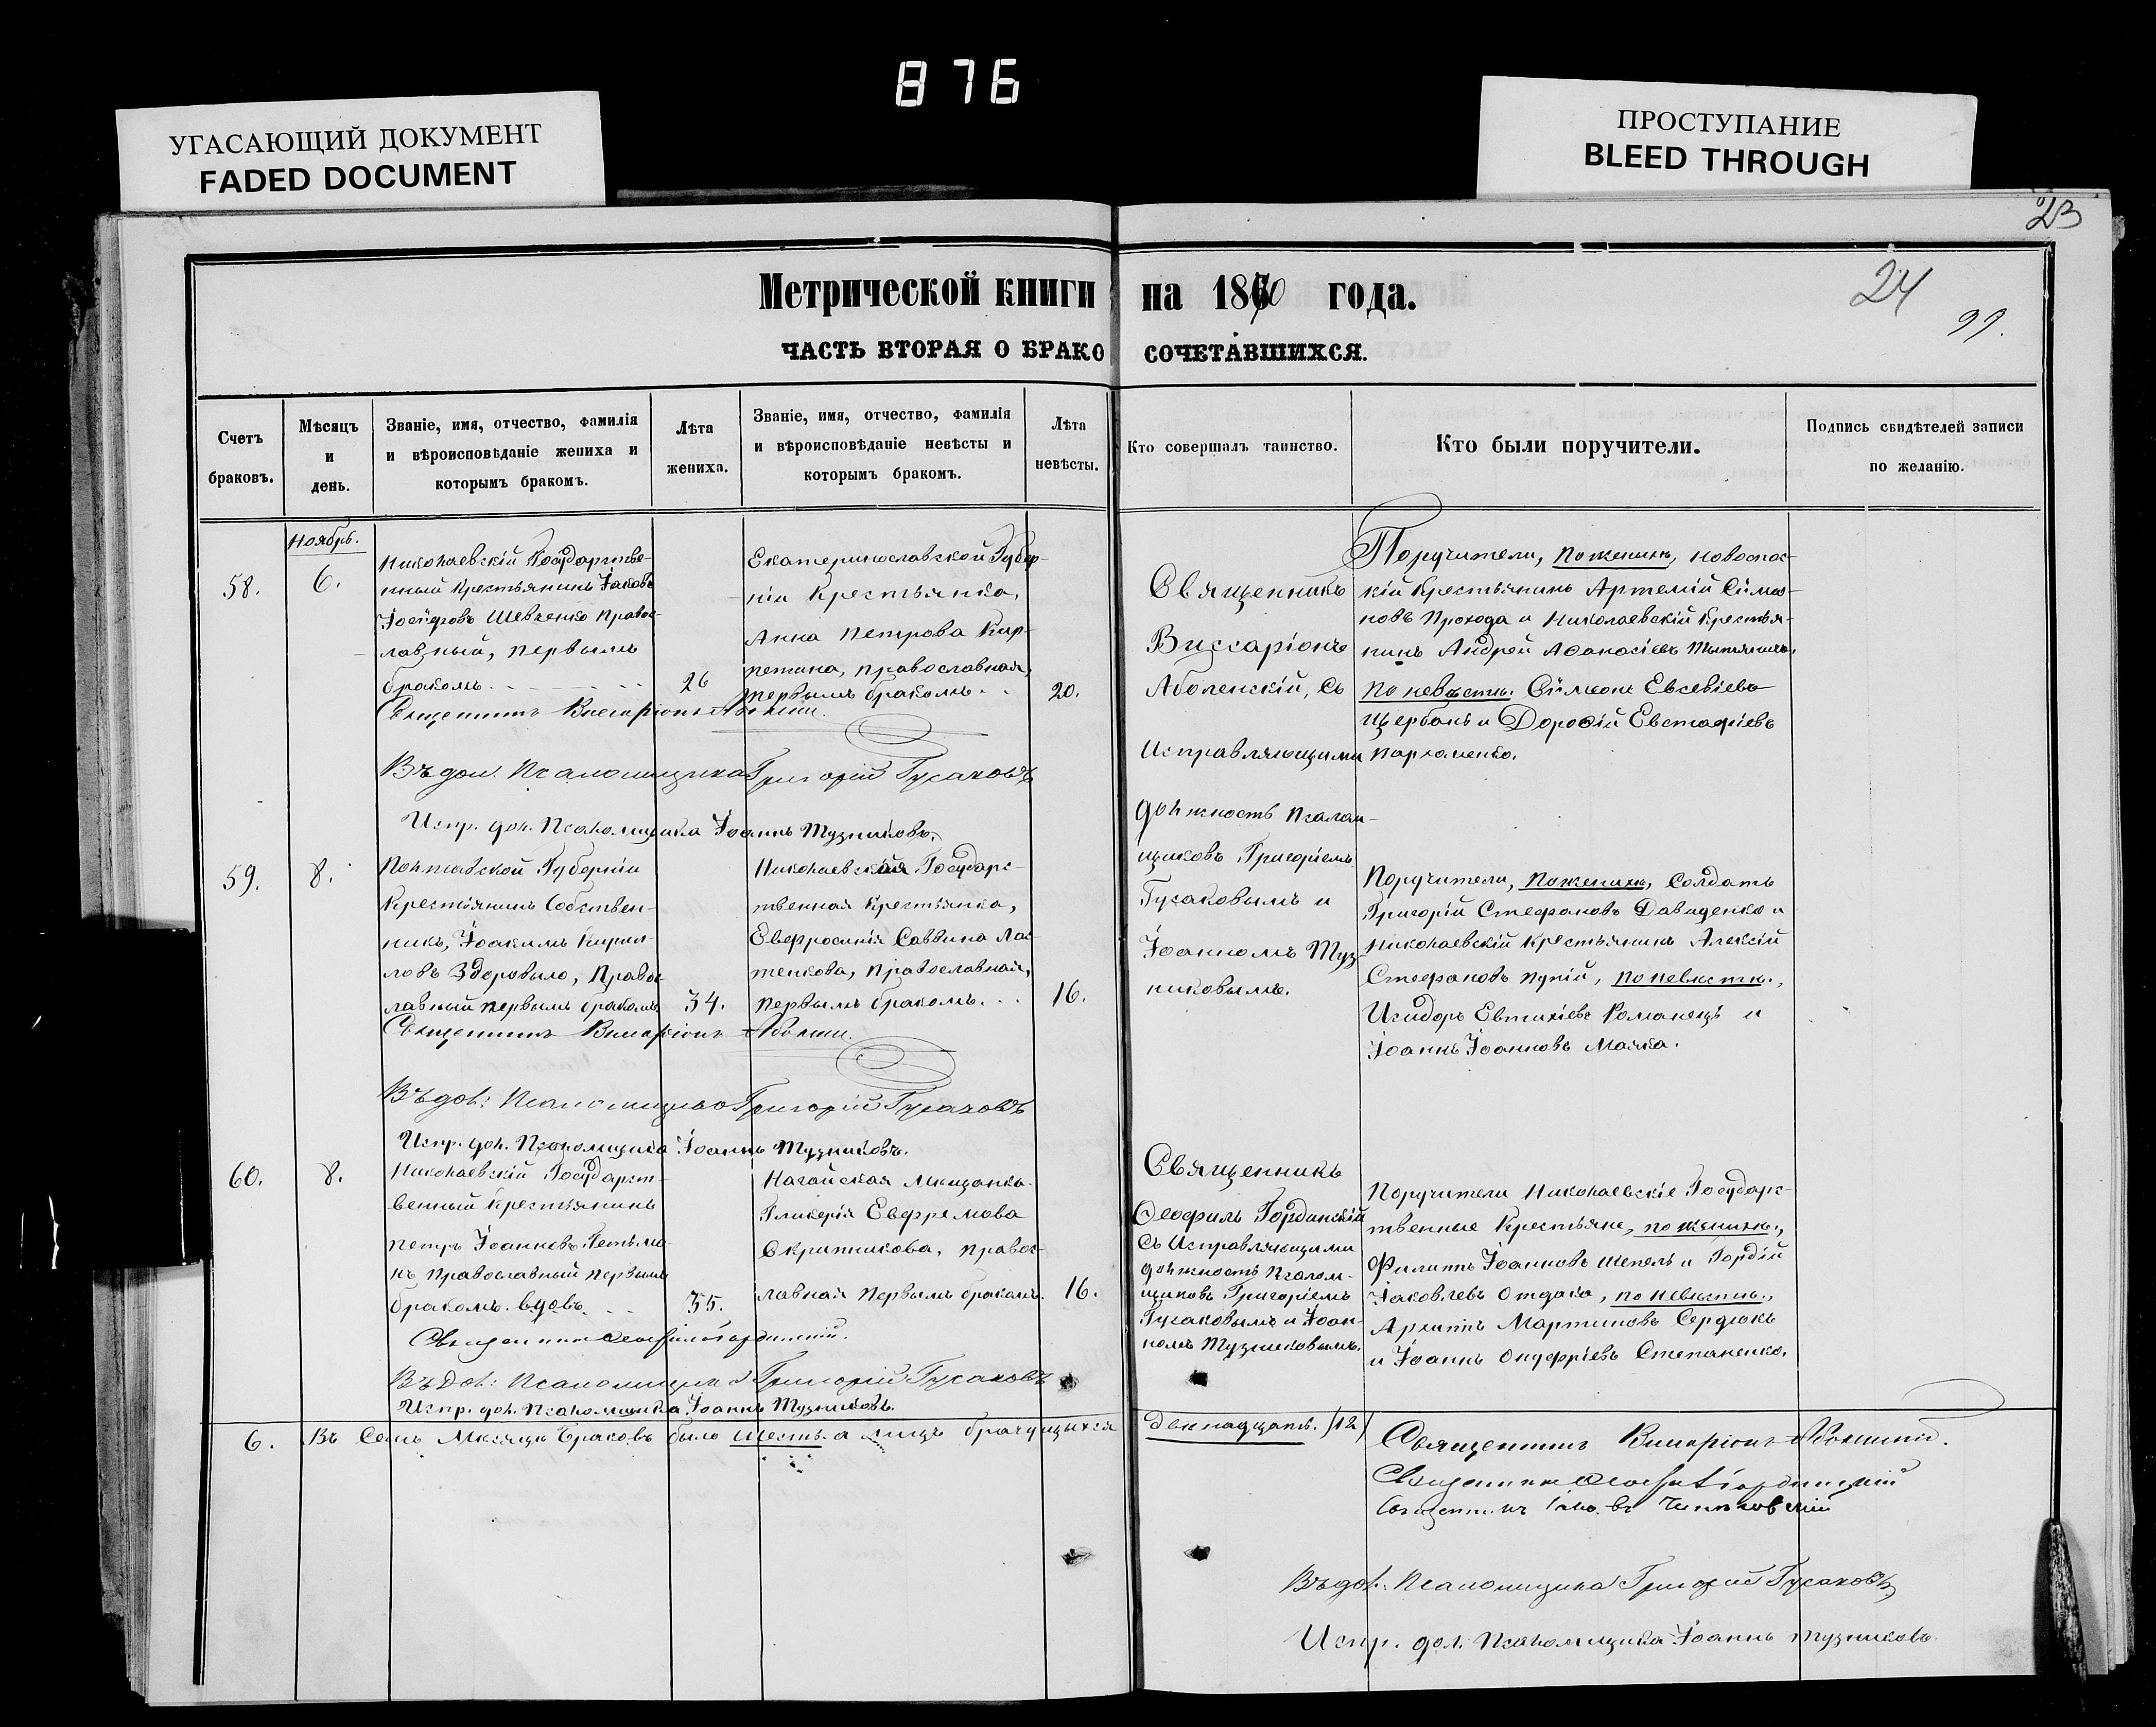 876
УГАСАЮЩИЙ ДОКУМЕНТ
FADED DOCUMENT
ПРОСТУПАНИЕ
BLEED THROUGH
23
24
99.
Метрической книги на 1870 года.
ЧАСТЬ ВТОРАЯ О БРАКОСОЧЕТАВШИХСЯ.
Счетъ браковъ.
Мѣсяцъ и день.
Званіе, имя, отчество, фамилія и вѣроисповѣданіе жениха и которымъ бракомъ.
Лѣта жениха.
Званіе, имя, отчество, фамилія и вѣроисповѣданіе невѣсты и которымъ бракомъ.
Лѣта невѣсты.
Кто совершалъ таинство.
Кто были поручители.
Подпись свидѣтелей записи по желанію.
Ноябрь.
58.
6.
Николаевскій Государстве-
нный Крестьянинъ Іаковъ
Іосифовъ Шевченко Правос-
лавный, первымъ
бракомъ.
26
Екатеринославской Губер-
ніи Крестьянка,
Анна Петрова Кир-
петина, православная,
первымъ бракомъ.
20.
Священникъ
Виссаріонъ
Аболенскій, съ
Исправляющими
должность Псалом-
щиковъ Григоріемъ
Гусаковымъ и
Іоанномъ Туз-
никовымъ.
Поручители, по женихѣ, новоспас-
кій Крестьянинъ Артемій Сѵмео-
новъ Прохода и Николаевскій Крестья-
нинъ Андрей Аѳанасіевъ
по невѣстѣ. Сѵмеонъ Евсевіевъ
Щербань и Дороѳій Евстафіевъ
Пархоменко.
Священникъ Виссаріонъ
Въ дол. Псаломщика Григорій Гусаковъ
Испр. дол. Псаломщика Іоаннъ Тузниковъ.
59.
8.
Полтавской Губерніи
Крестьянинъ Собствен-
никъ, Іоакимъ Кирил-
ловъ Здоровыло, Правос-
лавный первымъ бракомъ
34.
Николаевская Государс-
твенная Крестьянка,
Евфросинія Саввина Лас-
тенкова, православная,
первымъ бракомъ.
16.
Поручители, по женихѣ, Солдатъ
Григорій Стефановъ Давиденко и
Николаевскій Крестьянинъ Алексій
Стефановъ Пупій, по невѣстѣ.,
Исидоръ Евтихіевъ Романецъ и
Іоаннъ Іоанновъ Малка.
Священникъ Виссаріонъ
Въ дол: Псаломщика Григорій Гусаковъ
Испр. дол. Псаломщика Іоаннъ Тузниковъ.
60.
8.
Николаевскій Государст-
венный Крестьянинъ
Петръ Іоанновъ Гетьма-
нъ Православный первымъ
бракомъ. вдовъ.
35.
Нагайская Мѣщанка
Гликерія Евфремова
Скрипникова, правос-
лавная первымъ бракомъ.
16.
Священникъ
Ѳеофилъ Гординскій
съ Исправляющими
должность Псалом-
щиковъ Григоріемъ
Гусаковымъ и Іоан-
номъ Тузниковымъ.
Поручители Николаевскіе Государс-
твенные Крестьяне, по женихѣ.,
Филиппъ Іоанновъ Шепель и Гордій
Іаковлевъ Отдака, по невѣстѣ.,
Архипъ Мартиновъ Сердюкъ
и Іоаннъ Онуфріевъ Степаненко.
Священникъ Ѳеофилъ Гординскій.
Въ дол: Псаломщика Григорій Гусаковъ
Испр. дол. Псаломщика Іоаннъ Тузниковъ.
6.
Въ Семъ Мѣсяцѣ браковъ было шесть. а лицъ брачущихся
двенадцать. /12/
Священникъ Виссаріонъ Аболенскій.
Священникъ Ѳеофилъ Гординскій
Священникъ
Въ дол: Псаломщика Григорій Гусаковъ
Испр. дол. Псаломщика Іоаннъ Тузниковъ.